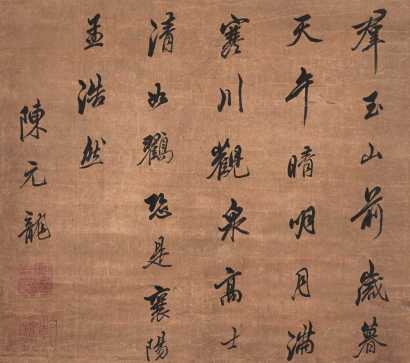 羣玉山前歲暮
天午晴明月滿
寒川觀泉高士
清如鶴恐是襄陽
孟浩然
陳元龍